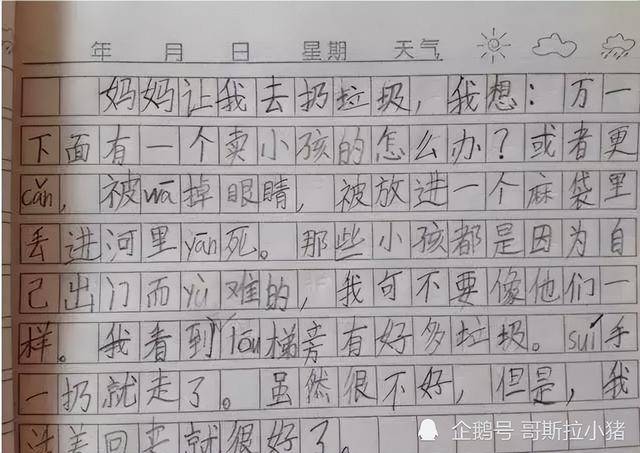 年 月 日 星期 天气
妈妈让我去扔垃圾，我想：万一
下面有一个卖小孩的怎么办？或者更
cǎn，被wā掉眼睛，被放进一个麻袋里
丢进河里yān死。那些小孩都是因为自
己出门而yù难的，我可不要像他们一
样。我看到lóu梯旁有好多垃圾。suí手
一扔就走了。虽然很不好，但是，我
活着回来就很好了。
企鹅号 哥斯拉小猪